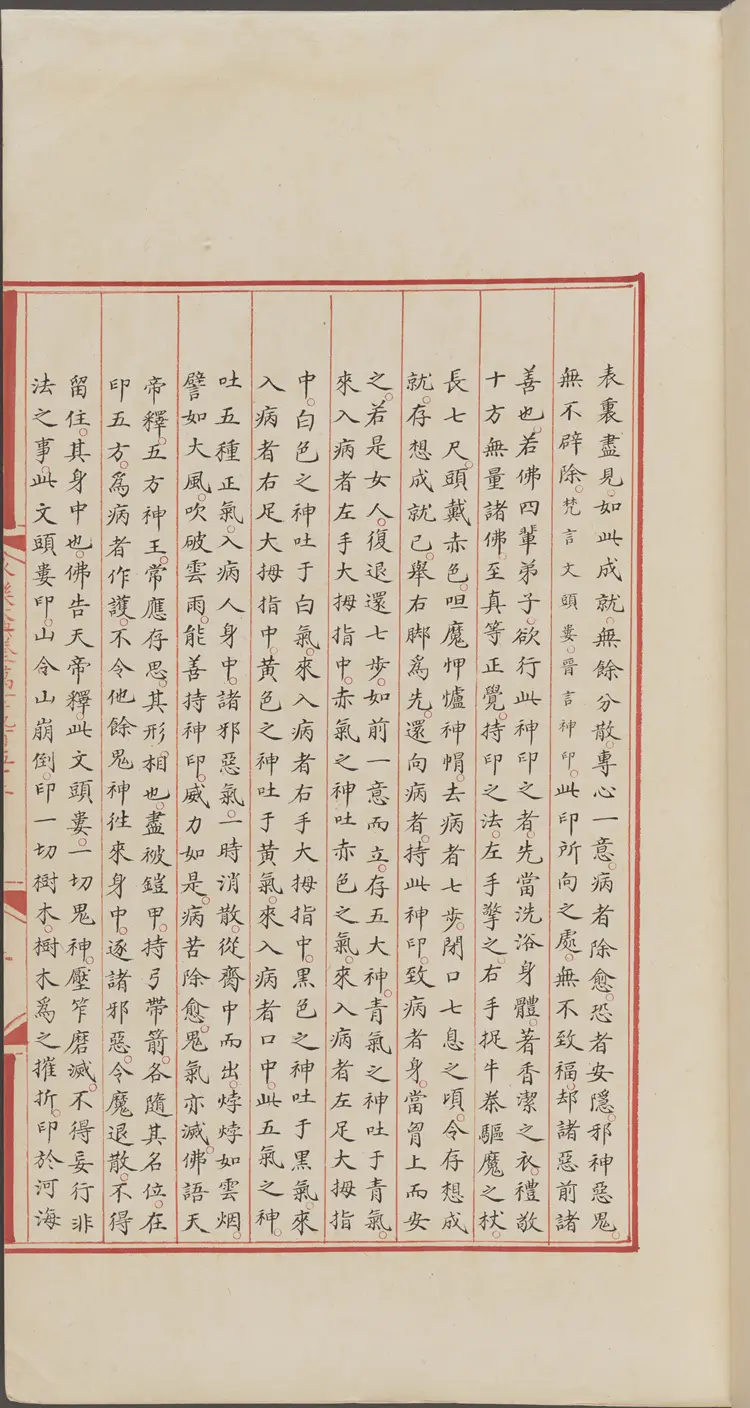 表裏盡見。如此成就。無餘分散。專心一意。病者除愈。恐者安隱。邪神惡鬼。
無不辟除。梵言文頭婁。晉言神印。此印所向之處。無不致福。却諸惡前諸
善也。若佛四輩弟子。欲行此神印之者。先當洗浴身體。著香潔之衣。禮敬
十方無量諸佛。至真等正覺。持印之法。左手擎之。右手捉牛拳驅魔之杖。
長七尺。頭戴赤色。呾魔㤉爐神㡌。去病者七步。閉口七息之頃。令存想成
就。存想成就已。舉右脚爲先。還向病者。持此神印。致病者身。當胷上而安
之。若是女人。復退還七步。如前一意而立。存五大神。青氣之神吐于青氣。
來入病者左手大拇指中。赤氣之神吐赤色之氣。來入病者左足大拇指
中。白色之神吐于白氣。來入病者右手大拇指中。黑色之神吐于黑氣。來
入病者右足大拇指中。黃色之神吐于黃氣。來入病者口中。此五氣之神。
吐五種正氣。入病人身中。諸邪惡氣。一時消散。從齋中而出。㶿㶿如雲烟。
譬如大風。吹破雲雨。能善持神印。威力如是。病苦除愈。鬼氣亦滅。佛語天
帝釋。五方神王。常應存思。其形相也。盡被鎧甲。持弓帶箭。各隨其名位。在
印五方。爲病者作護。不令他餘鬼神徃來身中。逐諸邪惡。令魔退散。不得
留住。其身中也。佛告天帝釋。此文頭婁。一切鬼神。壓笮磨滅。不得妄行非
法之事。此文頭婁印。山令山崩倒。印一切樹木。樹木爲之摧折。印於河海